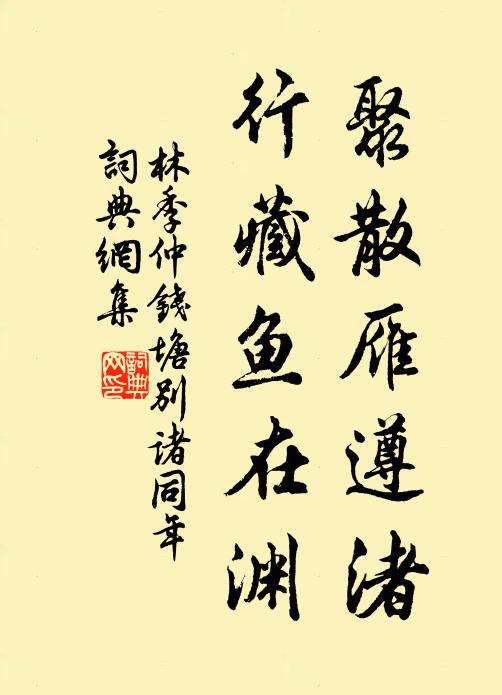 聚散雁遵渚
行藏鱼在渊
林季仲錢塘別诸同年
詞典網集
詞典
网印